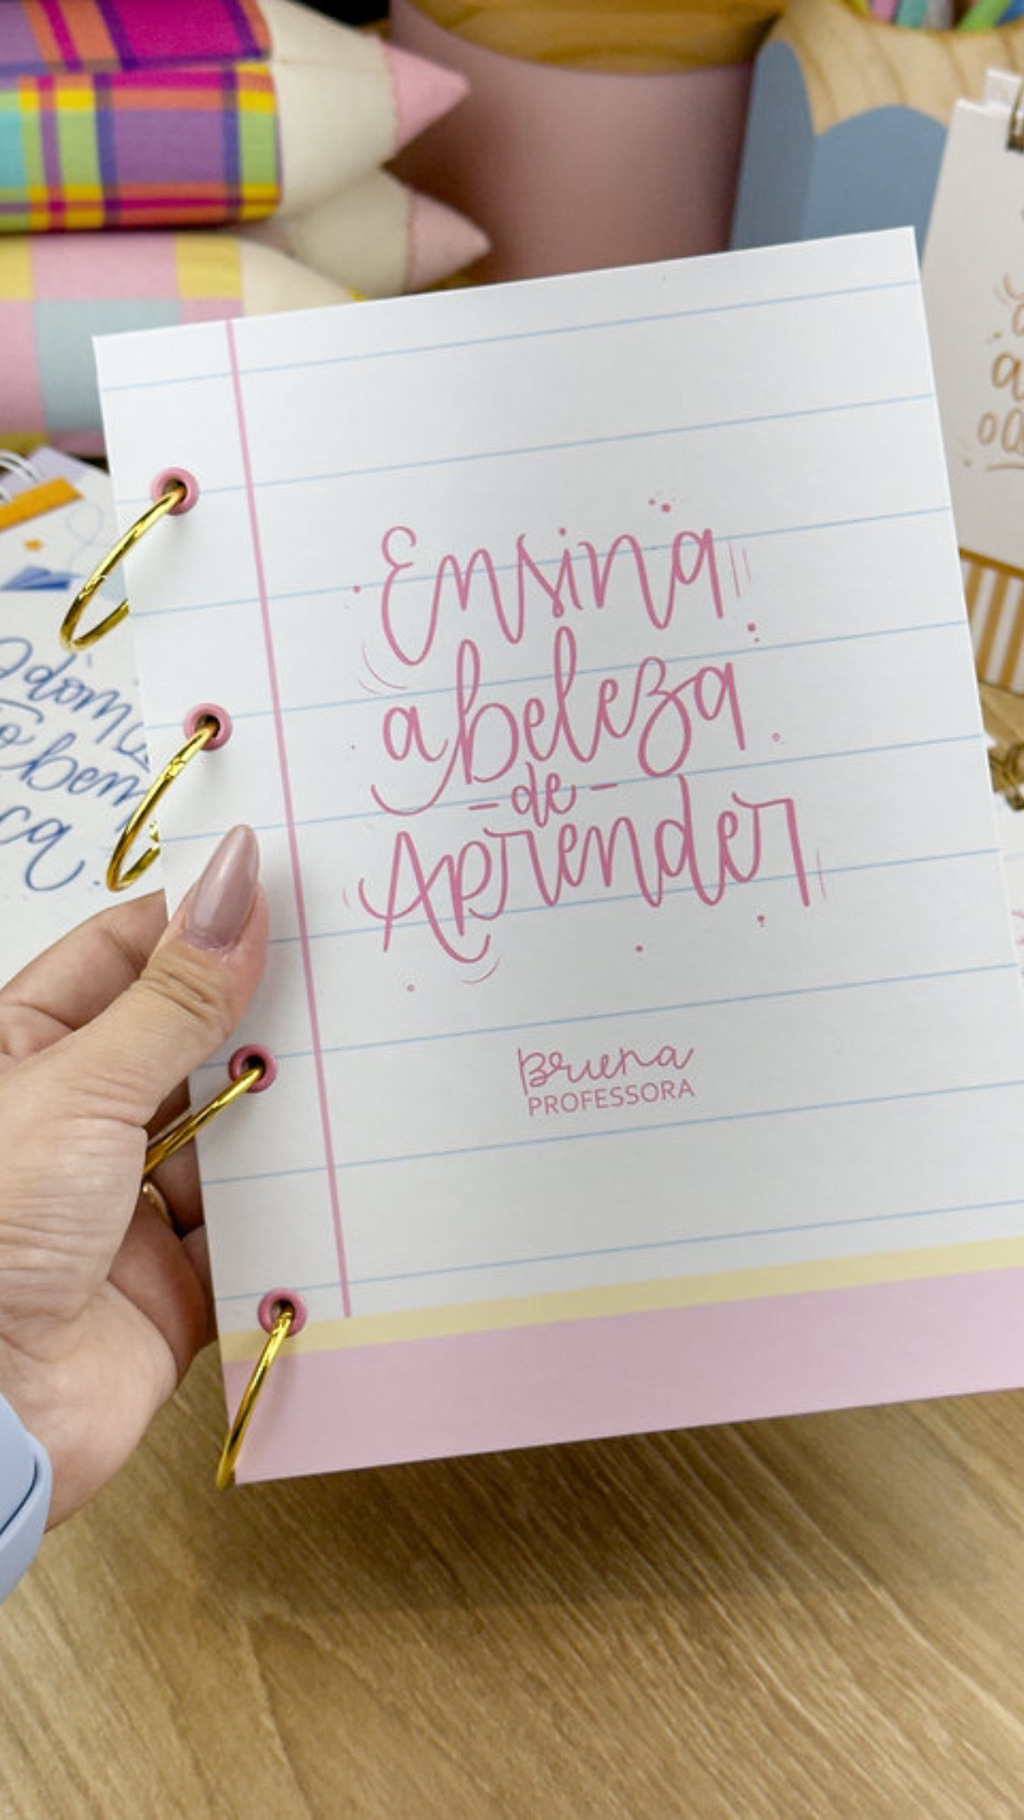 Ensina
a beleza
- de -
Aprender
Bruna
PROFESSORA